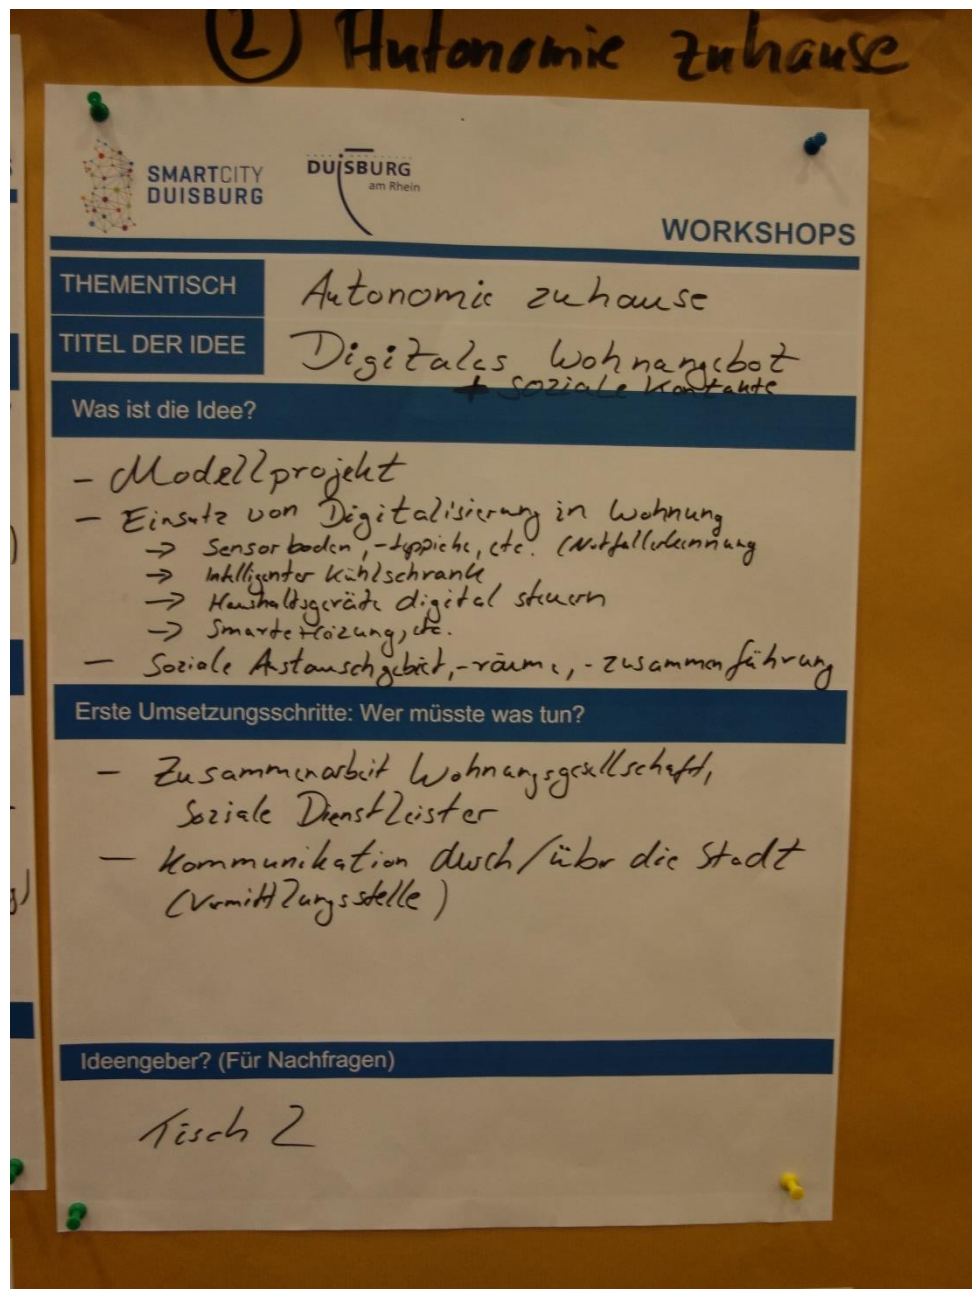 ② Autonomie zuhause
SMARTCITY
DUISBURG
DUISBURG
am Rhein
WORKSHOPS
THEMENTISCH
Autonomie zuhause
TITEL DER IDEE
Digitales Wohnangebot
+ soziale Kontakte
Was ist die Idee?
- Modellprojekt
- Einsatz von Digitalisierung in Wohnung
→ Sensorboden, -teppiche, etc. (Notfallerkennung
→ Intelligenter Kühlschrank
→ Haushaltsgeräte digital steuern
→ Smarte Heizung, etc.
- Soziale Austauschgebiet, -räume, -zusammenführung
Erste Umsetzungsschritte: Wer müsste was tun?
- Zusammenarbeit Wohnungsgesellschaft,
Soziale Dienstleister
- Kommunikation durch/über die Stadt
(Vermittlungsstelle)
Ideengeber? (Für Nachfragen)
Tisch 2